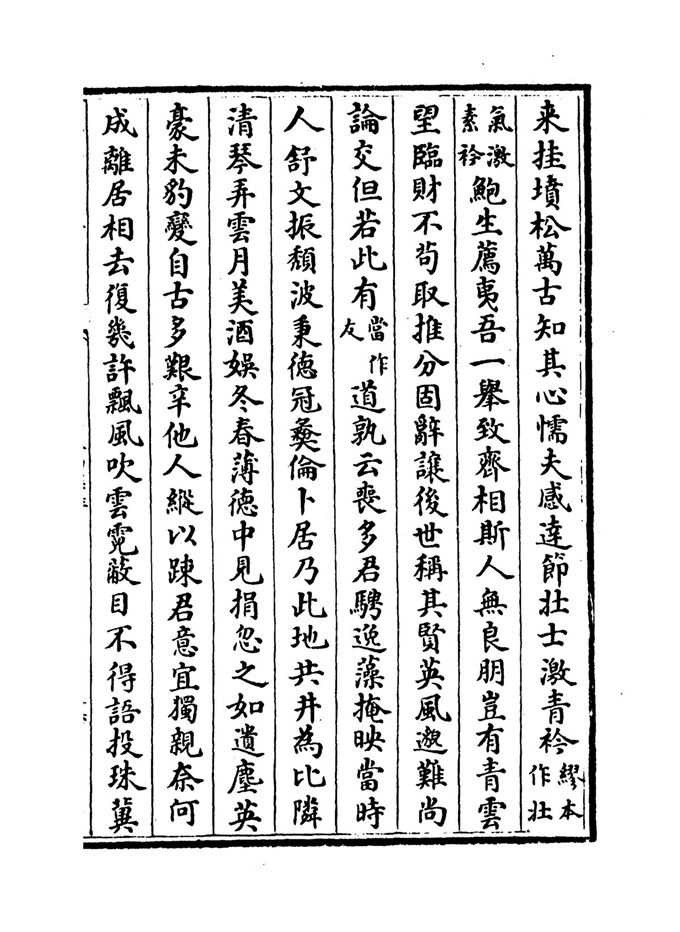 来挂墳松萬古知其心懦夫感達節壯士激青衿繆本作壯
氣激素衿鮑生薦夷吾一舉致齊相斯人無良朋豈有青雲
望臨財不苟取推分固辭讓後世稱其賢英風邈難尚
論交但若此有當作友道孰云喪多君騁逸藻掩映當時
人舒文振頽波秉德冠彜倫卜居乃此地共井為比隣
清琴弄雲月美酒娛冬春薄德中見捐忽之如遺塵英
豪未豹變自古多艱辛他人縱以踈君意宜獨親奈何
成離居相去復幾許飄風吹雲霓蔽目不得語投珠冀